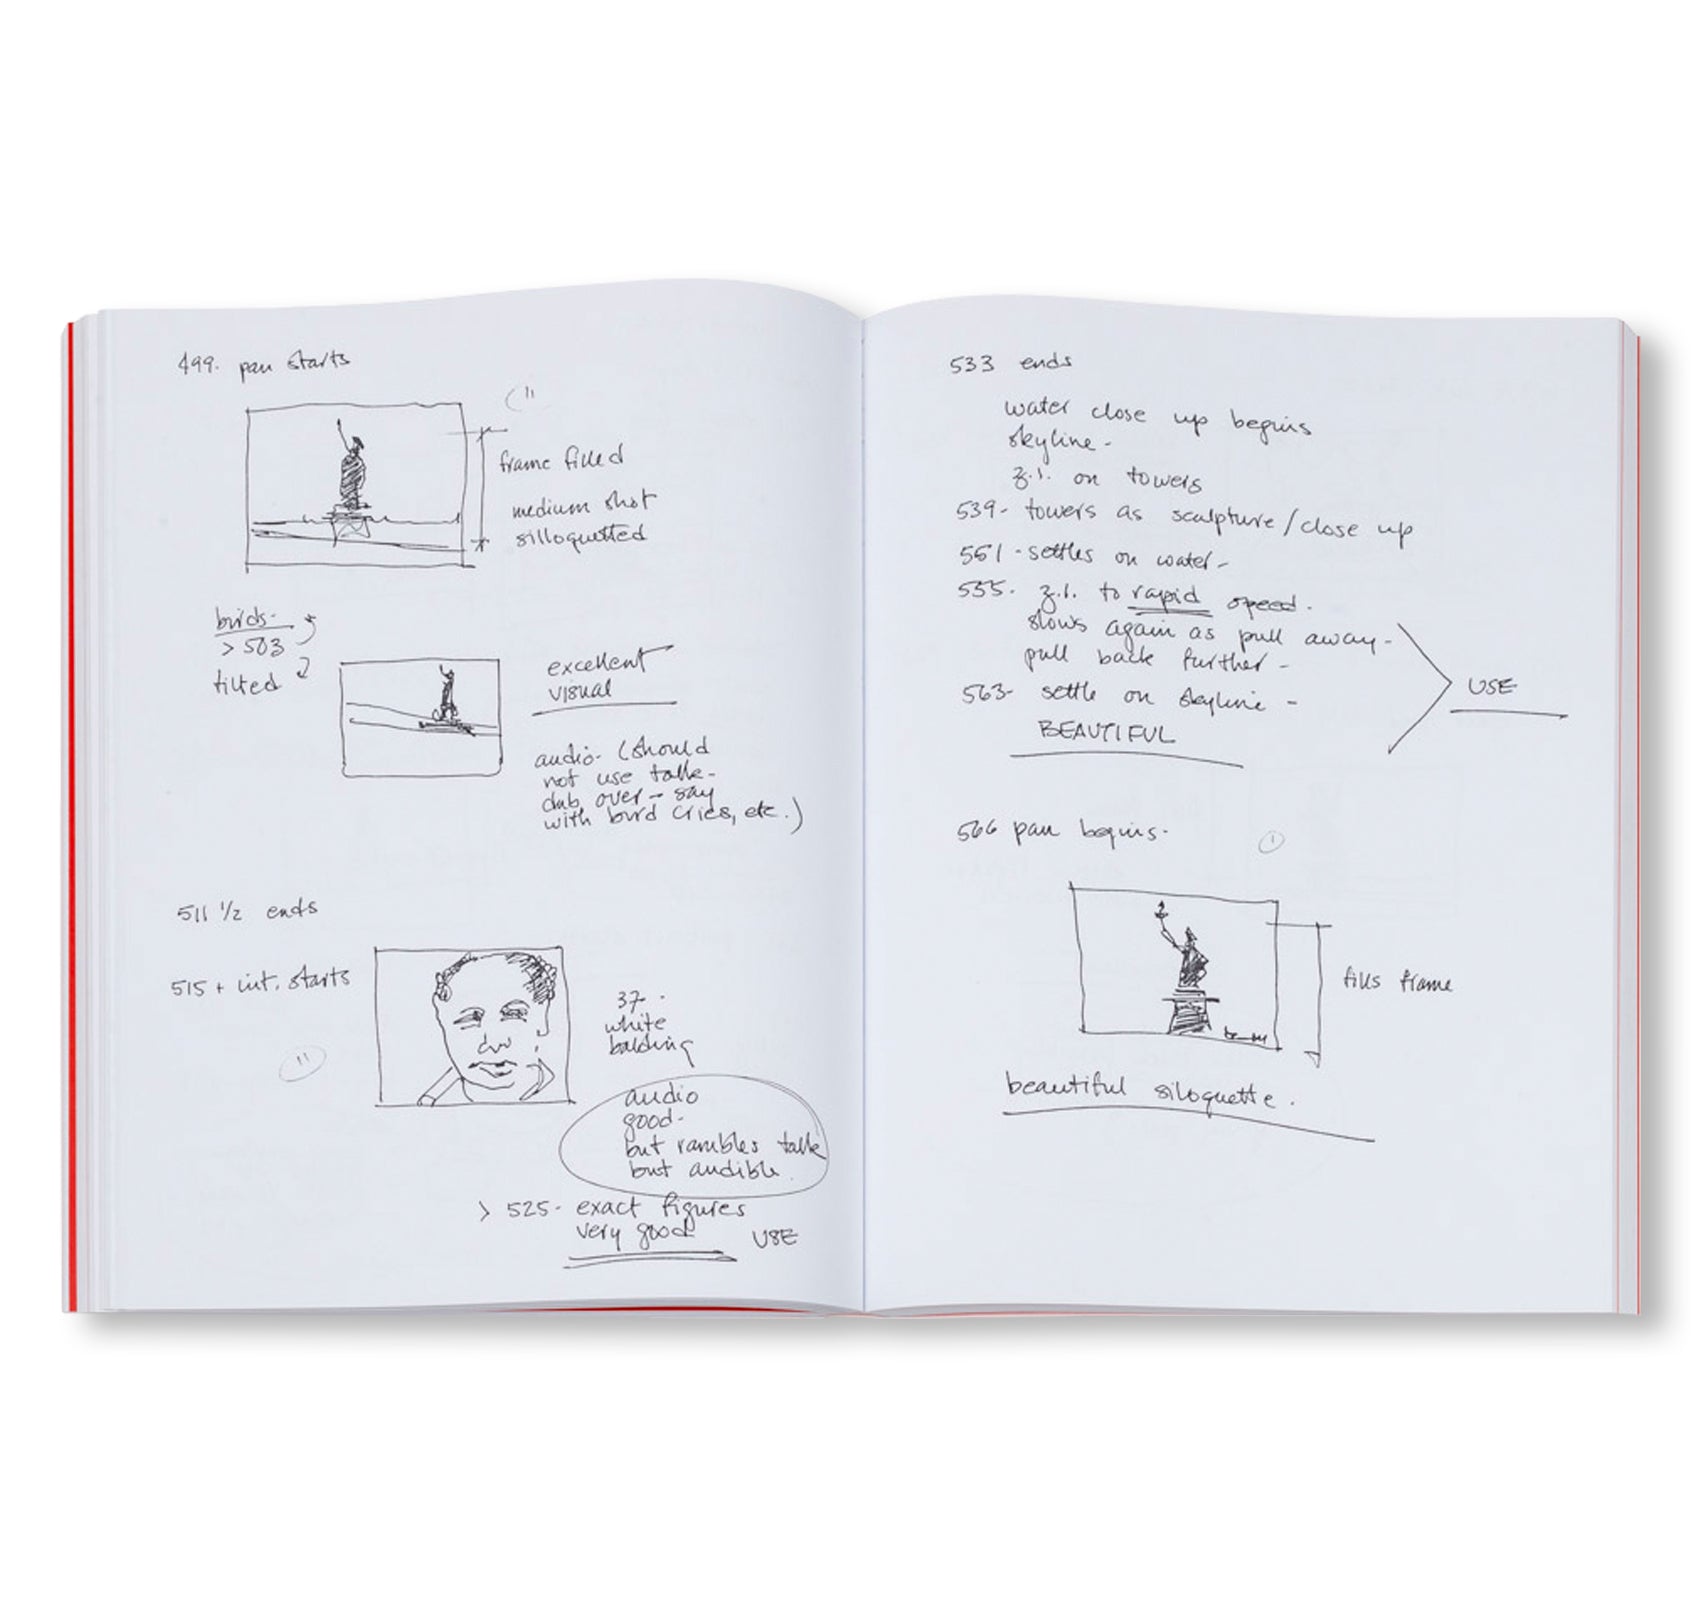 499. pan starts
frame filled
medium shot
silloquetted
birds-
> 503
tilted
excellent
visual
audio. (should
not use talk-
dub over - say
with bird cries, etc.)
511 1/2 ends
515 + int. starts
37.
white
balding
audio
good-
but rambles talk
but audible.
> 525- exact figures
very good
USE
533 ends
water close up begins
skyline-
z.i. on towers
539- towers as sculpture/close up
551-settles on water-
555. z.i. to rapid speed.
slows again as pull away-
pull back further-
563- settle on skyline-
BEAUTIFUL
USE
566 pan begins-
fills frame
beautiful siloquette.